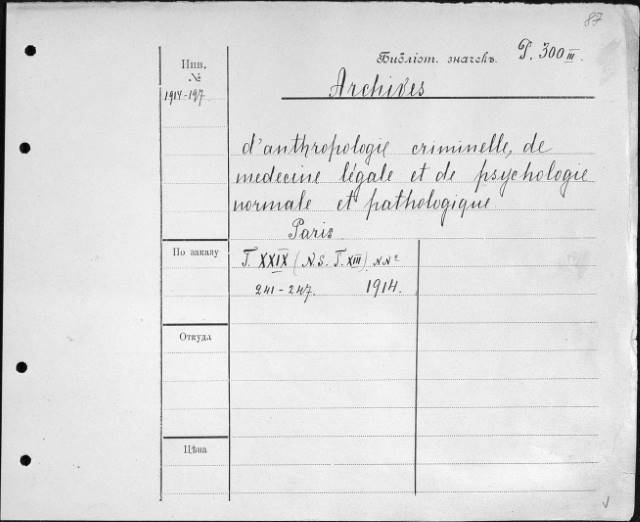 87
Библіот. значекъ. P. 300 III.
Инв.
№
Archives
1914-197
d'anthropologie criminelle, de
medecine légale et de psychologie
normale et pathologique
Paris
По заказу
T. XXIX (N.S. T. XIII) NNº
241-247. 1914.
Откуда
Цѣна